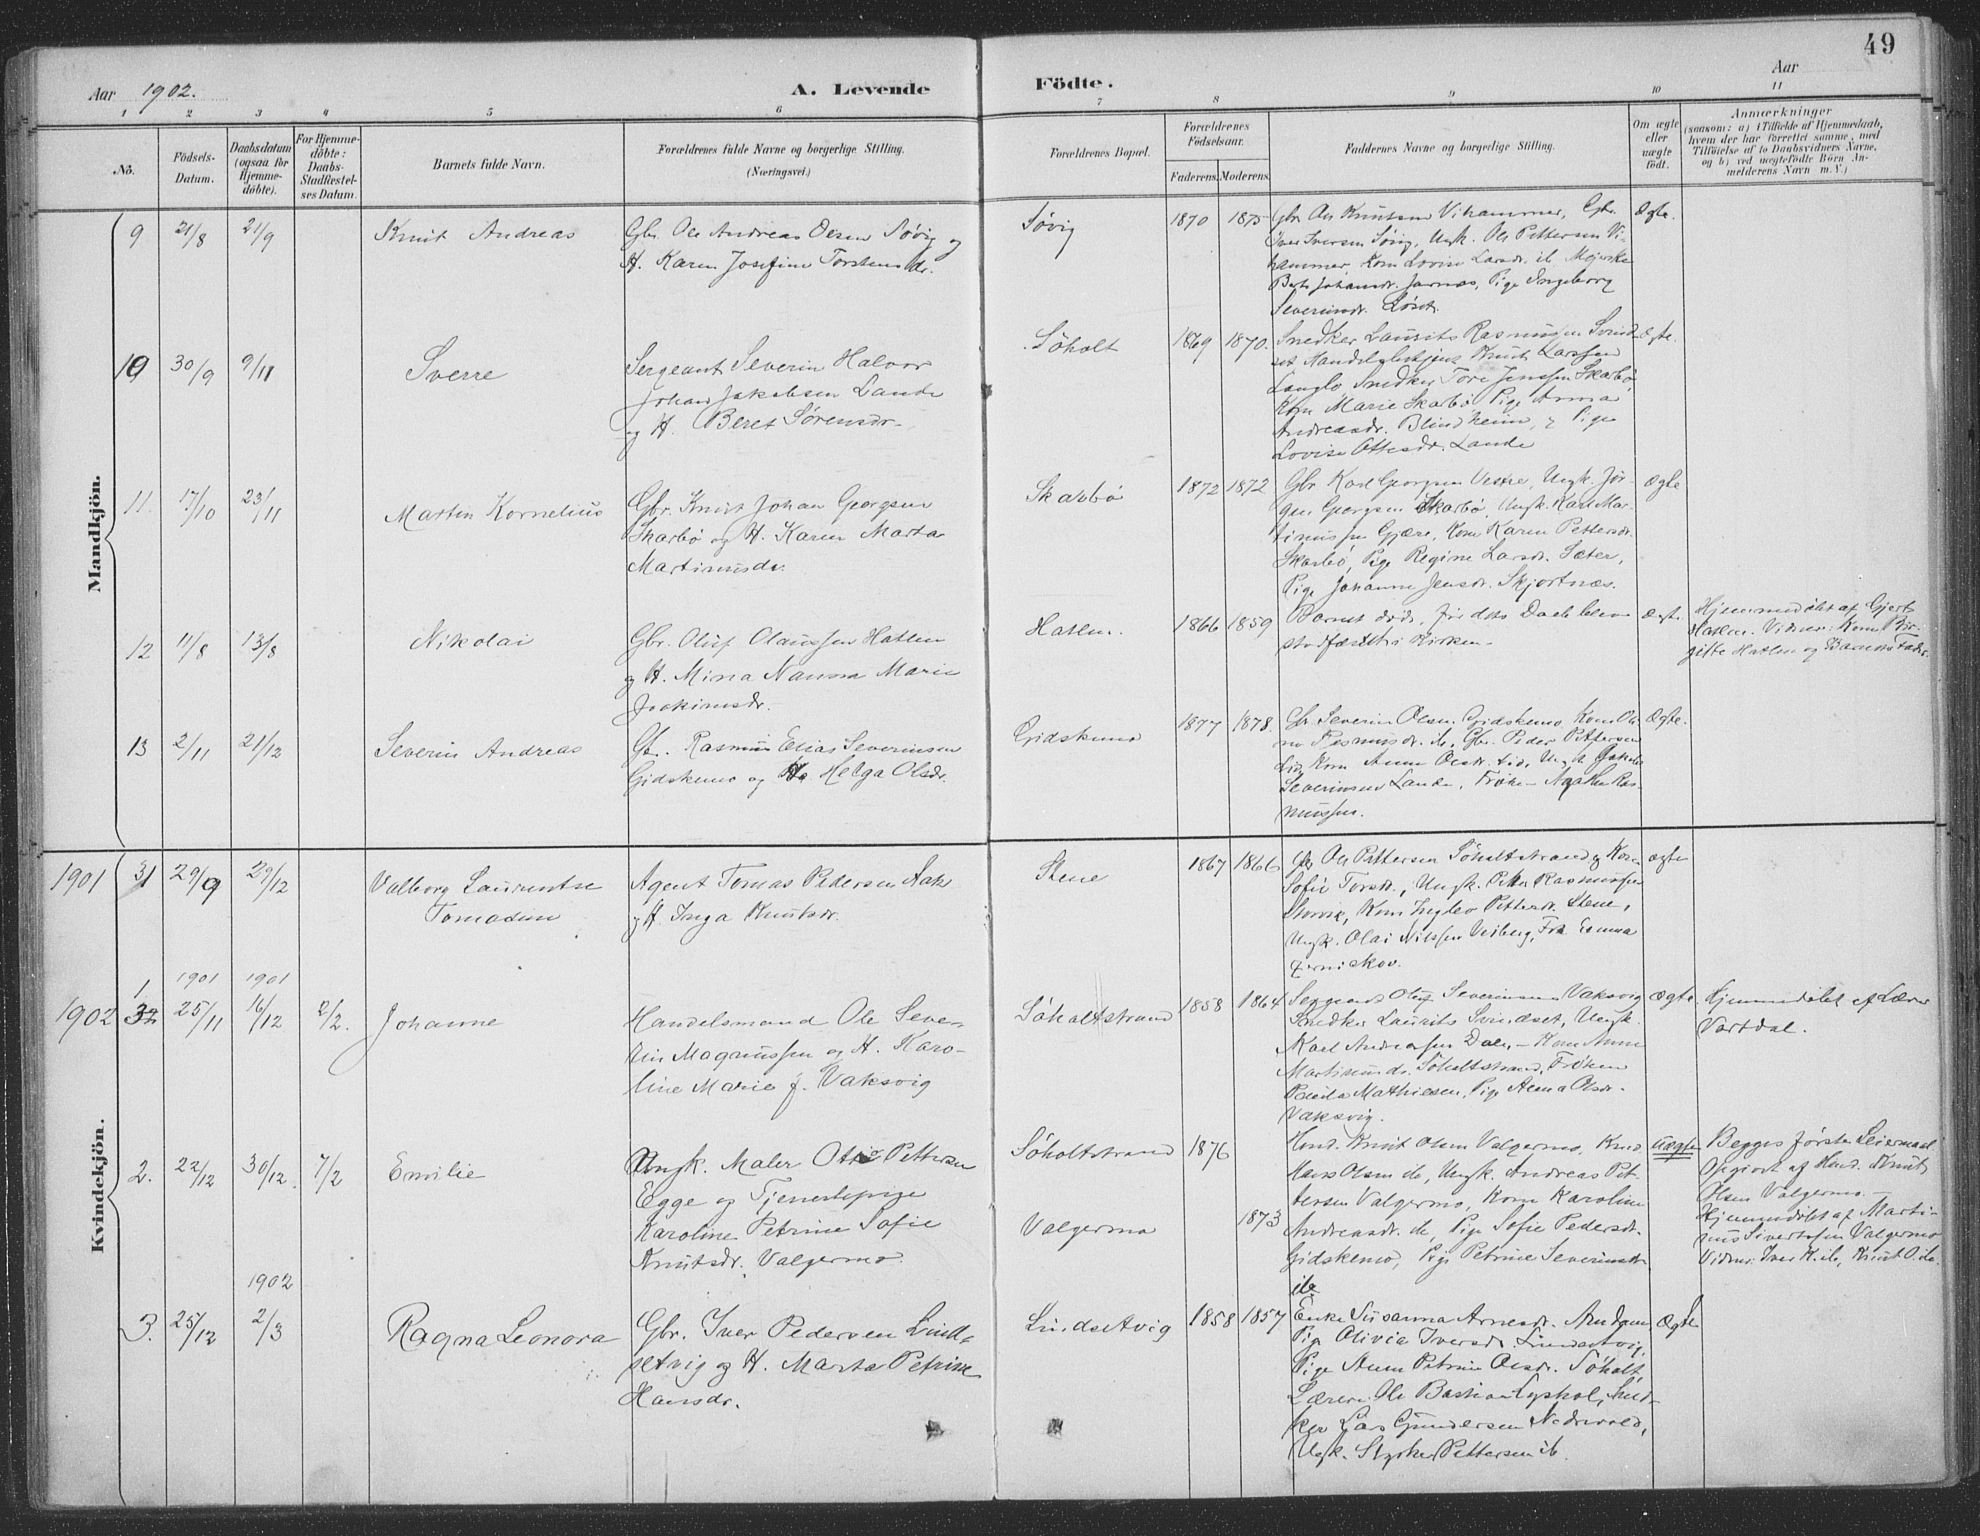 49
Aar 1902.
A. Levende Födte.
Aar
1 2 3 4 5 6 7 8 9 10 11
No.
Födsels-Datum.
Daabsdatum (ogsaa for Hjemme-döbte).
For Hjemme-döbte: Daabs-Stadfæstel-ses Datum.
Barnets fulde Navn.
Forældrenes fulde Navne og borgerlige Stilling.
(Næringsvei.)
Forældrenes Bopæl.
Forældrenes Födselsaar.
Faderens. Moderens.
Faddernes Navne og borgerlige Stilling.
Om ægte eller uægte födt.
Anmærkninger
(saasom: a) i Tilfælde af Hjemmedaab,
hvem der har forrettet samme, med
Tilföielse af to Daabsvidners Navne,
og b) ved uægtefödte Börn An-
melderens Navn m. V.)
Mandkjön.
9 21/8 21/9 Knut Andreas
Gbr. Ole Andreas Olsen Søvig og
H. Karen Josefine Torstensdr.
Søvig 1870 1875
Gbr. Ole Knutsen Vihammer, Gbr.
Iver Iversen Søvig, Ungk. Ole Pettersen Vi-
hammer, Kone Lovise Larsdr. ib Mejerske
Johansdr. Jarnæs, Pige Ingeborg
Severinsdr.
Ægte.
10 30/9 9/11 Sverre
Sergeant Severin Halvor
Johan Jakobsen Lande
og H. Beret Sørensdr.
Søholt 1869 1870.
Snedker Laurits Rasmussen Svind-
set Handelsbetjent Knut Larssen
Langlo Snedker Tore Jenssen Skarbø,
Kone Marie Skarbø Pige Anna
Andreasdr. Blindheim, Pige
Lovise Ottesdr. Lande
ægte.
11. 17/10 23/11 Martin Kornelius
Gbr. Knut Johan Georgsen
Skarbø og H. Karen Marta
Martinusdr.
Skarbø 1872 1872
Gbr. Karl Georgsen Vestre, Ungk. Jør-
gen Georgsen Skarbø, Ungk. Karl Mar-
tinussen Gjære, Kone Karen Pettersdr.
Skarbø, Pige Regine Larsdr. Sæter,
Pige Johanne Jensdr. Skjortnæs.
Ægte
12 11/8 13/8 Nikolai
Gbr. Oluf Olaussen Hatlen
og H. Mina Nanna Marie
Joakimsdr.
Hatlen. 1866 1859
Barnet døde, før dets Daab blev
stadfæstet i Kirken.
ægte.
Hjemmedøbt af Gjert
Hatlen. Vidner: Kone Bir-
gitte Hatlen og Barnets Fader.
13 2/11 21/12 Severin Andreas
Gbr. Rasmus Elias Severinsen
Gidskemo og H. Helga Olsdr.
Gidskemo 1877 1878.
Gbr Severin Olsen Gidskemo, Kone
Rasmusdr. ib, Gbr. Peder Pettersen
Lid, Kone Anne Olsdr. Lid, Ungk. Jakob
Severinsen Lande, Frøken Agathe Ras-
mussen.
Ægte.
Kvindekjön.
1901 31 29/9 29/12 Valborg Laurentse
Tomasine
Agent Tomas Pedersen Aak
og H. Inga Knutsdr.
Stene 1867 1866
Gbr. Ole Pettersen Søholtstrand og Kone
Sofie Torsdr., Ungk. Peter Rasmussen
Kone Pettersdr. Stene,
Ungk. Olai Nilssen Veiberg, Frk Emma
ægte
1901 1901
1902 1 32 25/11 16/12 2/2. Johanne
Handelsmand Ole Seve-
rin Magnussen og H. Karo-
line Marie J. Vaksvig
Søholtstrand 1858 1864
Sergeant Oluf Severinsen Vaksvig
Snedker Laurits Svindset, Ungk.
Karl Andreassen Dale, – Kone Anne
Martinusdr. Søholtstrand, Frøken
Paula Mathiesen, Pige Anna Olsdr.
Vaksvig.
Ægte
Hjemmedøbt af Lærer
Vartdal.
2. 22/12 30/12. 7/2 Emilie
Ungk. Maler Otto Pettersen
Egge og Tjenestepige
Karoline Petrine Sofie
Knutsdr. Valgermo.
Søholtstrand 1876
Valgermo 1873
Hmd. Knut Olsen Valgermo, Kmd
Hans Olsen ib, Ungk. Andreas Pet-
tersen Valgermo, Kone Karoline
Andreasdr. ib, Pige Sofie Pedersdr.
Gidskemo, Pige Petrine Severinsdr
ib
Uægte
Begges første Leiermaal
Opgivet af Hmd. Knut
Olsen Valgermo. –
Hjemmedøbt af Marti-
nus Sivertsen Valgermo
Vidner: Iver K. ib, Knut O. ib.
1902
3. 25/12 2/3 Ragna Leonora
Gbr. Iver Pedersen Lind-
setvig og H. Marta Petrine
Hansdr.
Lindsetvig 1858 1857
Enke Susanna Arnesdr. Amdam
Pige Olivia Iversdr. Lindsetvig,
Pige Anne Petrine Olsdr. Søholt,
Lærer Ole Bastian Lyshol, Sned-
ker Lars Gundersen Nedrevold,
Ungk. Styrker Pettersen ib.
Ægte